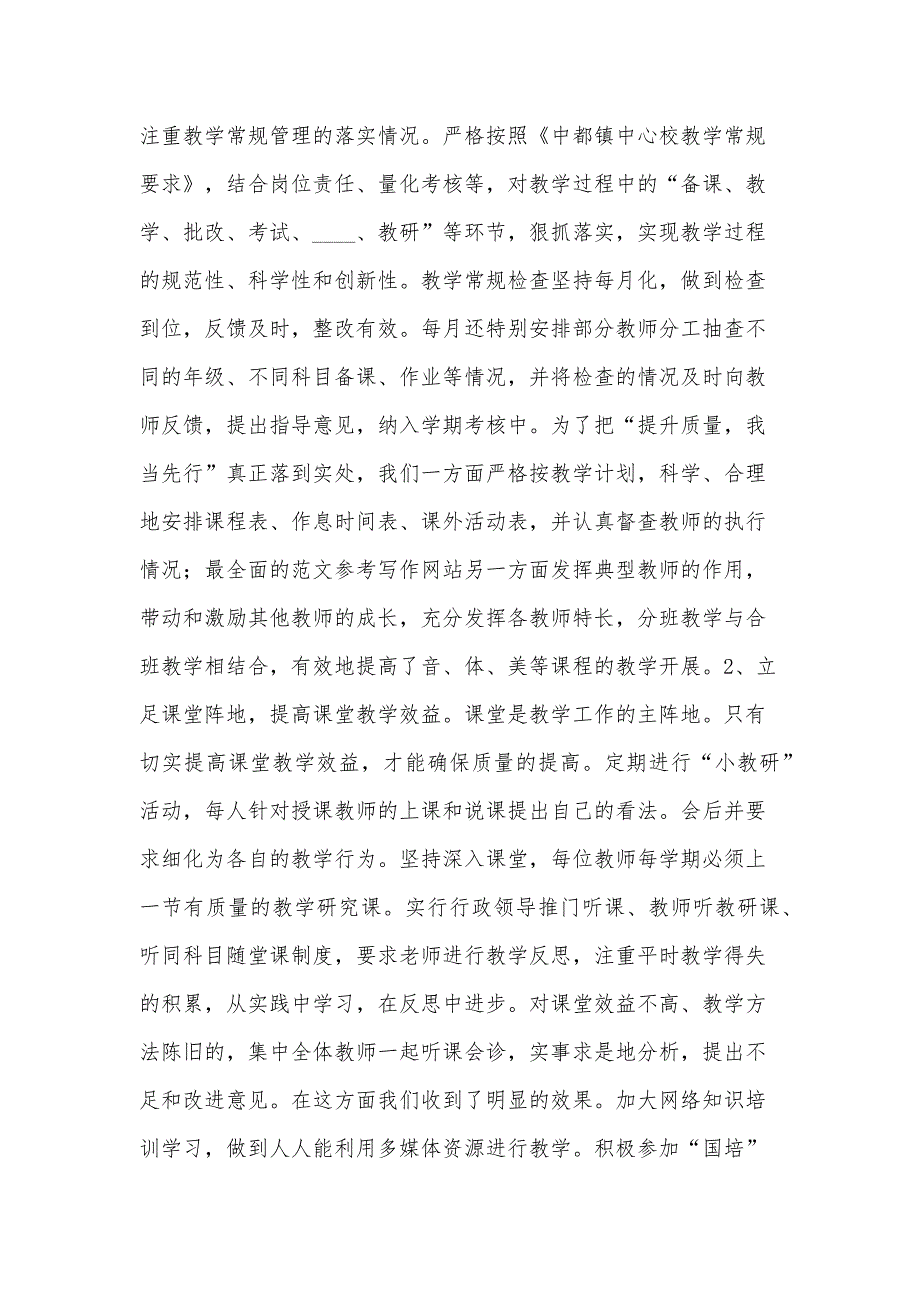 注重教学常规管理的落实情况。严格按照《中都镇中心校教学常规
要求》，结合岗位责任、量化考核等，对教学过程中的“备课、教
学、批改、考试、____、教研”等环节，狠抓落实，实现教学过程
的规范性、科学性和创新性。教学常规检查坚持每月化，做到检查
到位，反馈及时，整改有效。每月还特别安排部分教师分工抽查不
同的年级、不同科目备课、作业等情况，并将检查的情况及时向教
师反馈，提出指导意见，纳入学期考核中。为了把“提升质量，我
当先行”真正落到实处，我们一方面严格按教学计划，科学、合理
地安排课程表、作息时间表、课外活动表，并认真督查教师的执行
情况；最全面的范文参考写作网站另一方面发挥典型教师的作用，
带动和激励其他教师的成长，充分发挥各教师特长，分班教学与合
班教学相结合，有效地提高了音、体、美等课程的教学开展。2、立
足课堂阵地，提高课堂教学效益。课堂是教学工作的主阵地。只有
切实提高课堂教学效益，才能确保质量的提高。定期进行“小教研”
活动，每人针对授课教师的上课和说课提出自己的看法。会后并要
求细化为各自的教学行为。坚持深入课堂，每位教师每学期必须上
一节有质量的教学研究课。实行行政领导推门听课、教师听教研课、
听同科目随堂课制度，要求老师进行教学反思，注重平时教学得失
的积累，从实践中学习，在反思中进步。对课堂效益不高、教学方
法陈旧的，集中全体教师一起听课会诊，实事求是地分析，提出不
足和改进意见。在这方面我们收到了明显的效果。加大网络知识培
训学习，做到人人能利用多媒体资源进行教学。积极参加“国培”